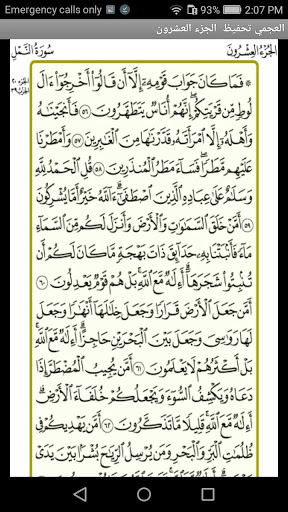 Emergency calls only 2:07 PM
العجمي تحفيظ الجزء العشرون
الجُزْءُ العِشْرُونَ سُورَةُ النَّمْلِ
۞ فَمَا كَانَ جَوَابَ قَوْمِهِۦٓ إِلَّآ أَن قَالُوٓا۟ أَخْرِجُوٓا۟ ءَالَ
لُوطٍ مِّن قَرْيَتِكُمْ ۖ إِنَّهُمْ أُنَاسٌ يَتَطَهَّرُونَ ٥٦ فَأَنجَيْنَٰهُ
وَأَهْلَهُۥٓ إِلَّا ٱمْرَأَتَهُۥ قَدَّرْنَٰهَا مِنَ ٱلْغَٰبِرِينَ ٥٧ وَأَمْطَرْنَا
عَلَيْهِم مَّطَرًا ۖ فَسَآءَ مَطَرُ ٱلْمُنذَرِينَ ٥٨ قُلِ ٱلْحَمْدُ لِلَّهِ
وَسَلَٰمٌ عَلَىٰ عِبَادِهِ ٱلَّذِينَ ٱصْطَفَىٰٓ ۗ ءَآللَّهُ خَيْرٌ أَمَّا يُشْرِكُونَ
٥٩ أَمَّنْ خَلَقَ ٱلسَّمَٰوَٰتِ وَٱلْأَرْضَ وَأَنزَلَ لَكُم مِّنَ ٱلسَّمَآءِ
مَآءً فَأَنۢبَتْنَا بِهِۦ حَدَآئِقَ ذَاتَ بَهْجَةٍ مَّا كَانَ لَكُمْ أَن
تُنۢبِتُوا۟ شَجَرَهَآ ۗ أَءِلَٰهٌ مَّعَ ٱللَّهِ ۚ بَلْ هُمْ قَوْمٌ يَعْدِلُونَ
٦٠ أَمَّن جَعَلَ ٱلْأَرْضَ قَرَارًا وَجَعَلَ خِلَٰلَهَآ أَنْهَٰرًا وَجَعَلَ
لَهَا رَوَٰسِىَ وَجَعَلَ بَيْنَ ٱلْبَحْرَيْنِ حَاجِزًا ۗ أَءِلَٰهٌ مَّعَ ٱللَّهِ ۚ
بَلْ أَكْثَرُهُمْ لَا يَعْلَمُونَ ٦١ أَمَّن يُجِيبُ ٱلْمُضْطَرَّ إِذَا
دَعَاهُ وَيَكْشِفُ ٱلسُّوٓءَ وَيَجْعَلُكُمْ خُلَفَآءَ ٱلْأَرْضِ ۗ
أَءِلَٰهٌ مَّعَ ٱللَّهِ ۚ قَلِيلًا مَّا تَذَكَّرُونَ ٦٢ أَمَّن يَهْدِيكُمْ فِى
ظُلُمَٰتِ ٱلْبَرِّ وَٱلْبَحْرِ وَمَن يُرْسِلُ ٱلرِّيَٰحَ بُشْرًۢا بَيْنَ يَدَىْ